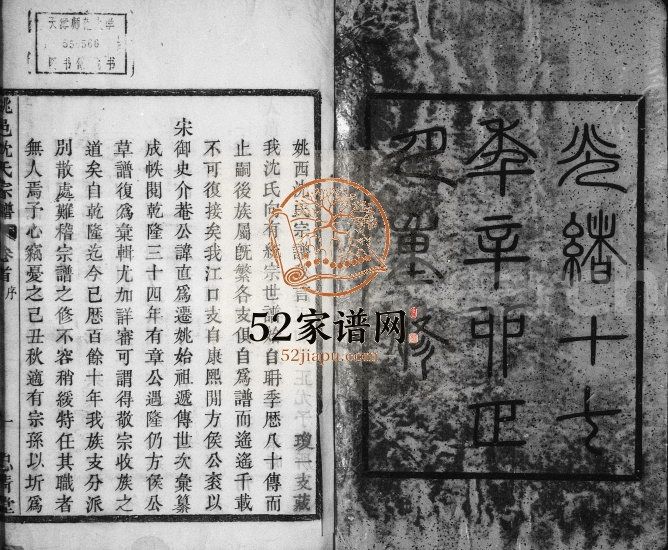 光緒十七
年辛卯正
月重修
姚西 氏宗譜
我沈氏向有統宗世譜 自聃季歷八十傳而
止嗣後族屬旣繁各支俱自爲譜而遙遙千載
不可復接矣我江口支自康熙間方侯公袞以
宋御史介菴公諱直爲遷姚始祖遞傳世次彙纂
成帙閱乾隆三十四年有章公遇隆仍方侯公
草譜復爲彙輯尤加詳審可謂得敬宗收族之
道矣自乾隆迄今已歷百餘十年我族支分派
別散處難稽宗譜之修不容稍緩特任其職者
無人焉予心竊憂之己丑秋適有宗孫以圻爲
姚邑沈氏宗譜 卷首 序 一 堂
天津师范大学
55.566
图书馆藏书
52家谱网
52jiapu.com